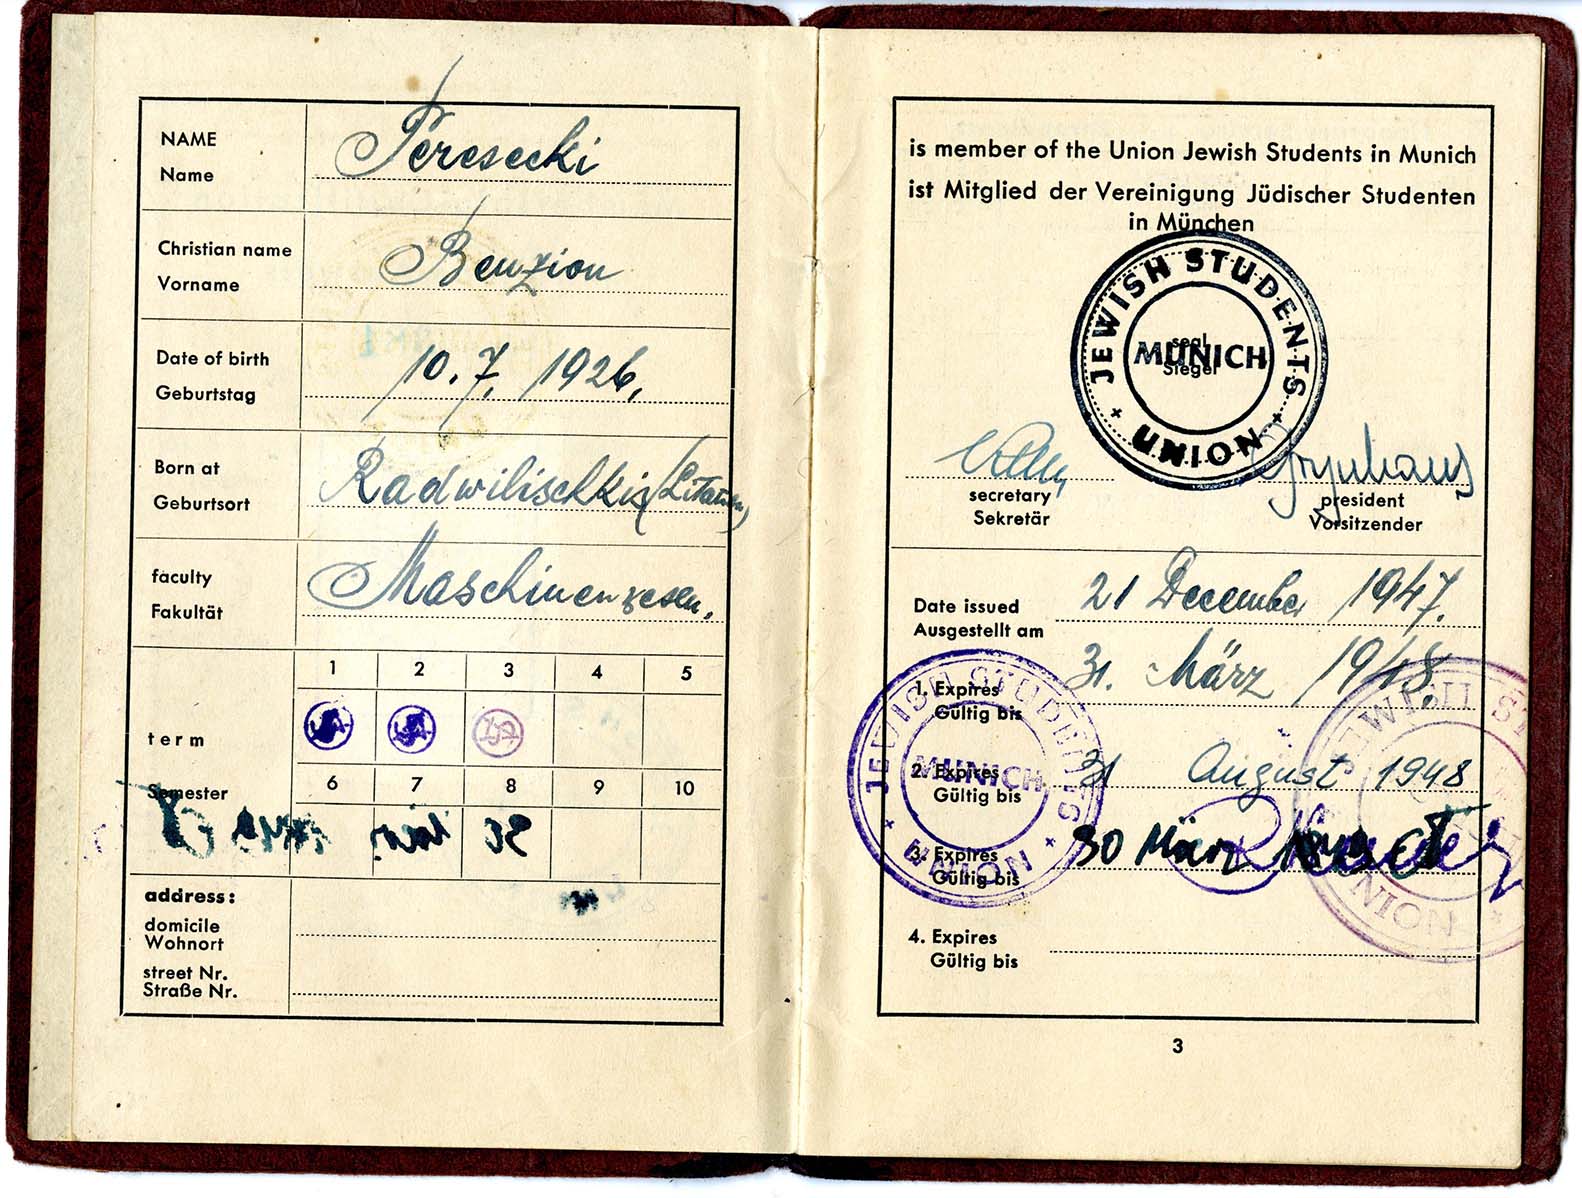 NAME
Name
Peresecki
Christian name
Vorname
Benzion
Date of birth
Geburtstag
10.7.1926.
Born at
Geburtsort
Radwilischkis (Litauen)
faculty
Fakultät
Maschinenwesen.
term
Semester
1 2 3 4 5
6 7 8 9 10
address:
domicile
Wohnort
street Nr.
Straße Nr.
is member of the Union Jewish Students in Munich
ist Mitglied der Vereinigung Jüdischer Studenten
in München
JEWISH STUDENTS
UNION
MUNICH
seal
Siegel
secretary
Sekretär
president
Vorsitzender
Date issued
Ausgestellt am
21 December 1947.
1. Expires
Gültig bis
31. März 1948.
2. Expires
Gültig bis
31 August 1948
3. Expires
Gültig bis
30 März
4. Expires
Gültig bis
JEWISH STUDENTS
MUNICH
UNION
JEWISH ST
UNION
3